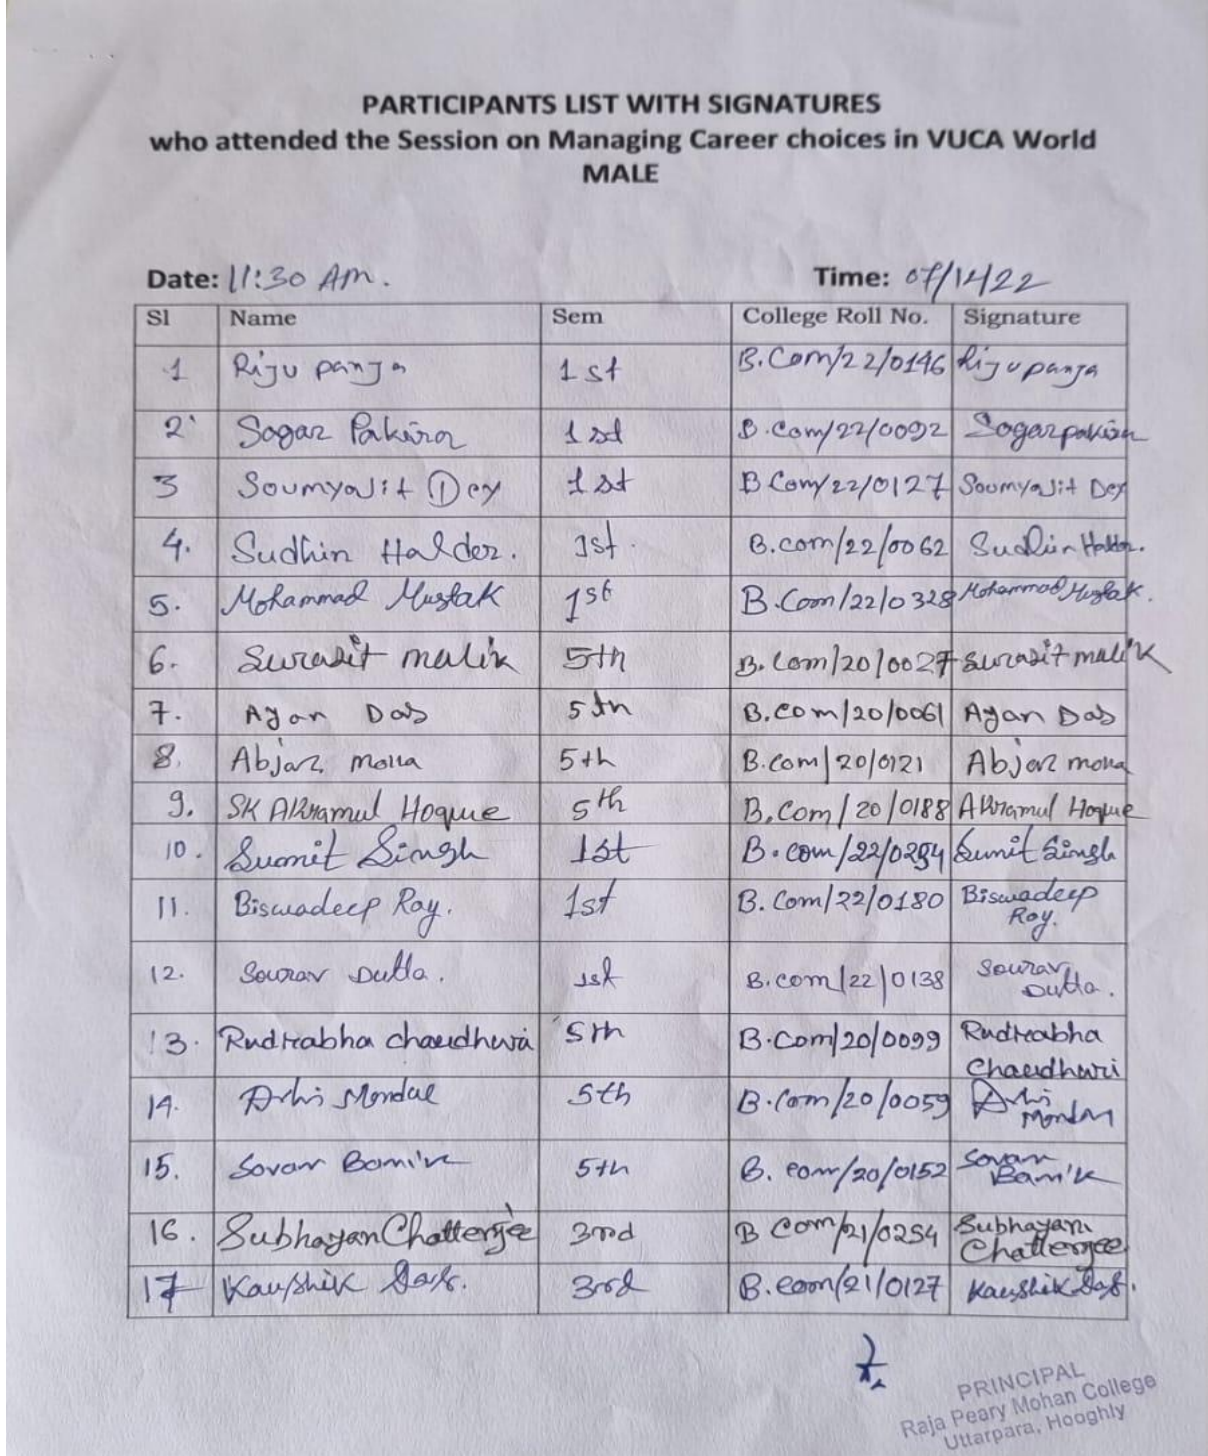 PARTICIPANTS LIST WITH SIGNATURES
who attended the Session on Managing Career choices in VUCA World
MALE
Date: 11:30 AM. Time: 07/12/22
Sl Name Sem College Roll No. Signature
1 Riju panja 1st B.Com/22/0146 Riju panja
2 Sagar Pakira 1st B.Com/22/0092 Sagar pakira
3 Soumyajit Dey 1st B Com/22/0127 Soumyajit Dey
4. Sudhin Halder. 1st. B.com/22/0062 Sudhin Halder.
5. Mohammad Mustak 1st B.Com/22/0328 Mohammad Mustak.
6. Surajit malik 5th B.Com/20/0027 Surajit malik
7. Ayan Das 5th B.com/20/0061 Ayan Das
8. Abjar molla 5th B.com/20/0121 Abjar molla
9. SK AKramul Hoque 5th B.Com/20/0188 AKramul Hoque
10. Sumit Singh 1st B.com/22/0294 Sumit Singh
11. Biswadeep Roy. 1st B.Com/22/0180 Biswadeep
Roy.
12. Sourav Dutta. 1st B.com/22/0138 Sourav
Dutta.
13. Rudrabha chaudhuri 5th B.Com/20/0099 Rudrabha
Chaudhuri
14. Mondal 5th B.Com/20/0059
Mondal
15. Sovan Banik 5th B.com/20/0152 Sovan
Banik
16. Subhayan Chatterjee 3rd B Com/21/0254 Subhayan
Chatterjee
17 Kaushik Das. 3rd B.com/21/0127 Kaushik Das.
PRINCIPAL
Raja Peary Mohan College
Uttarpara, Hooghly